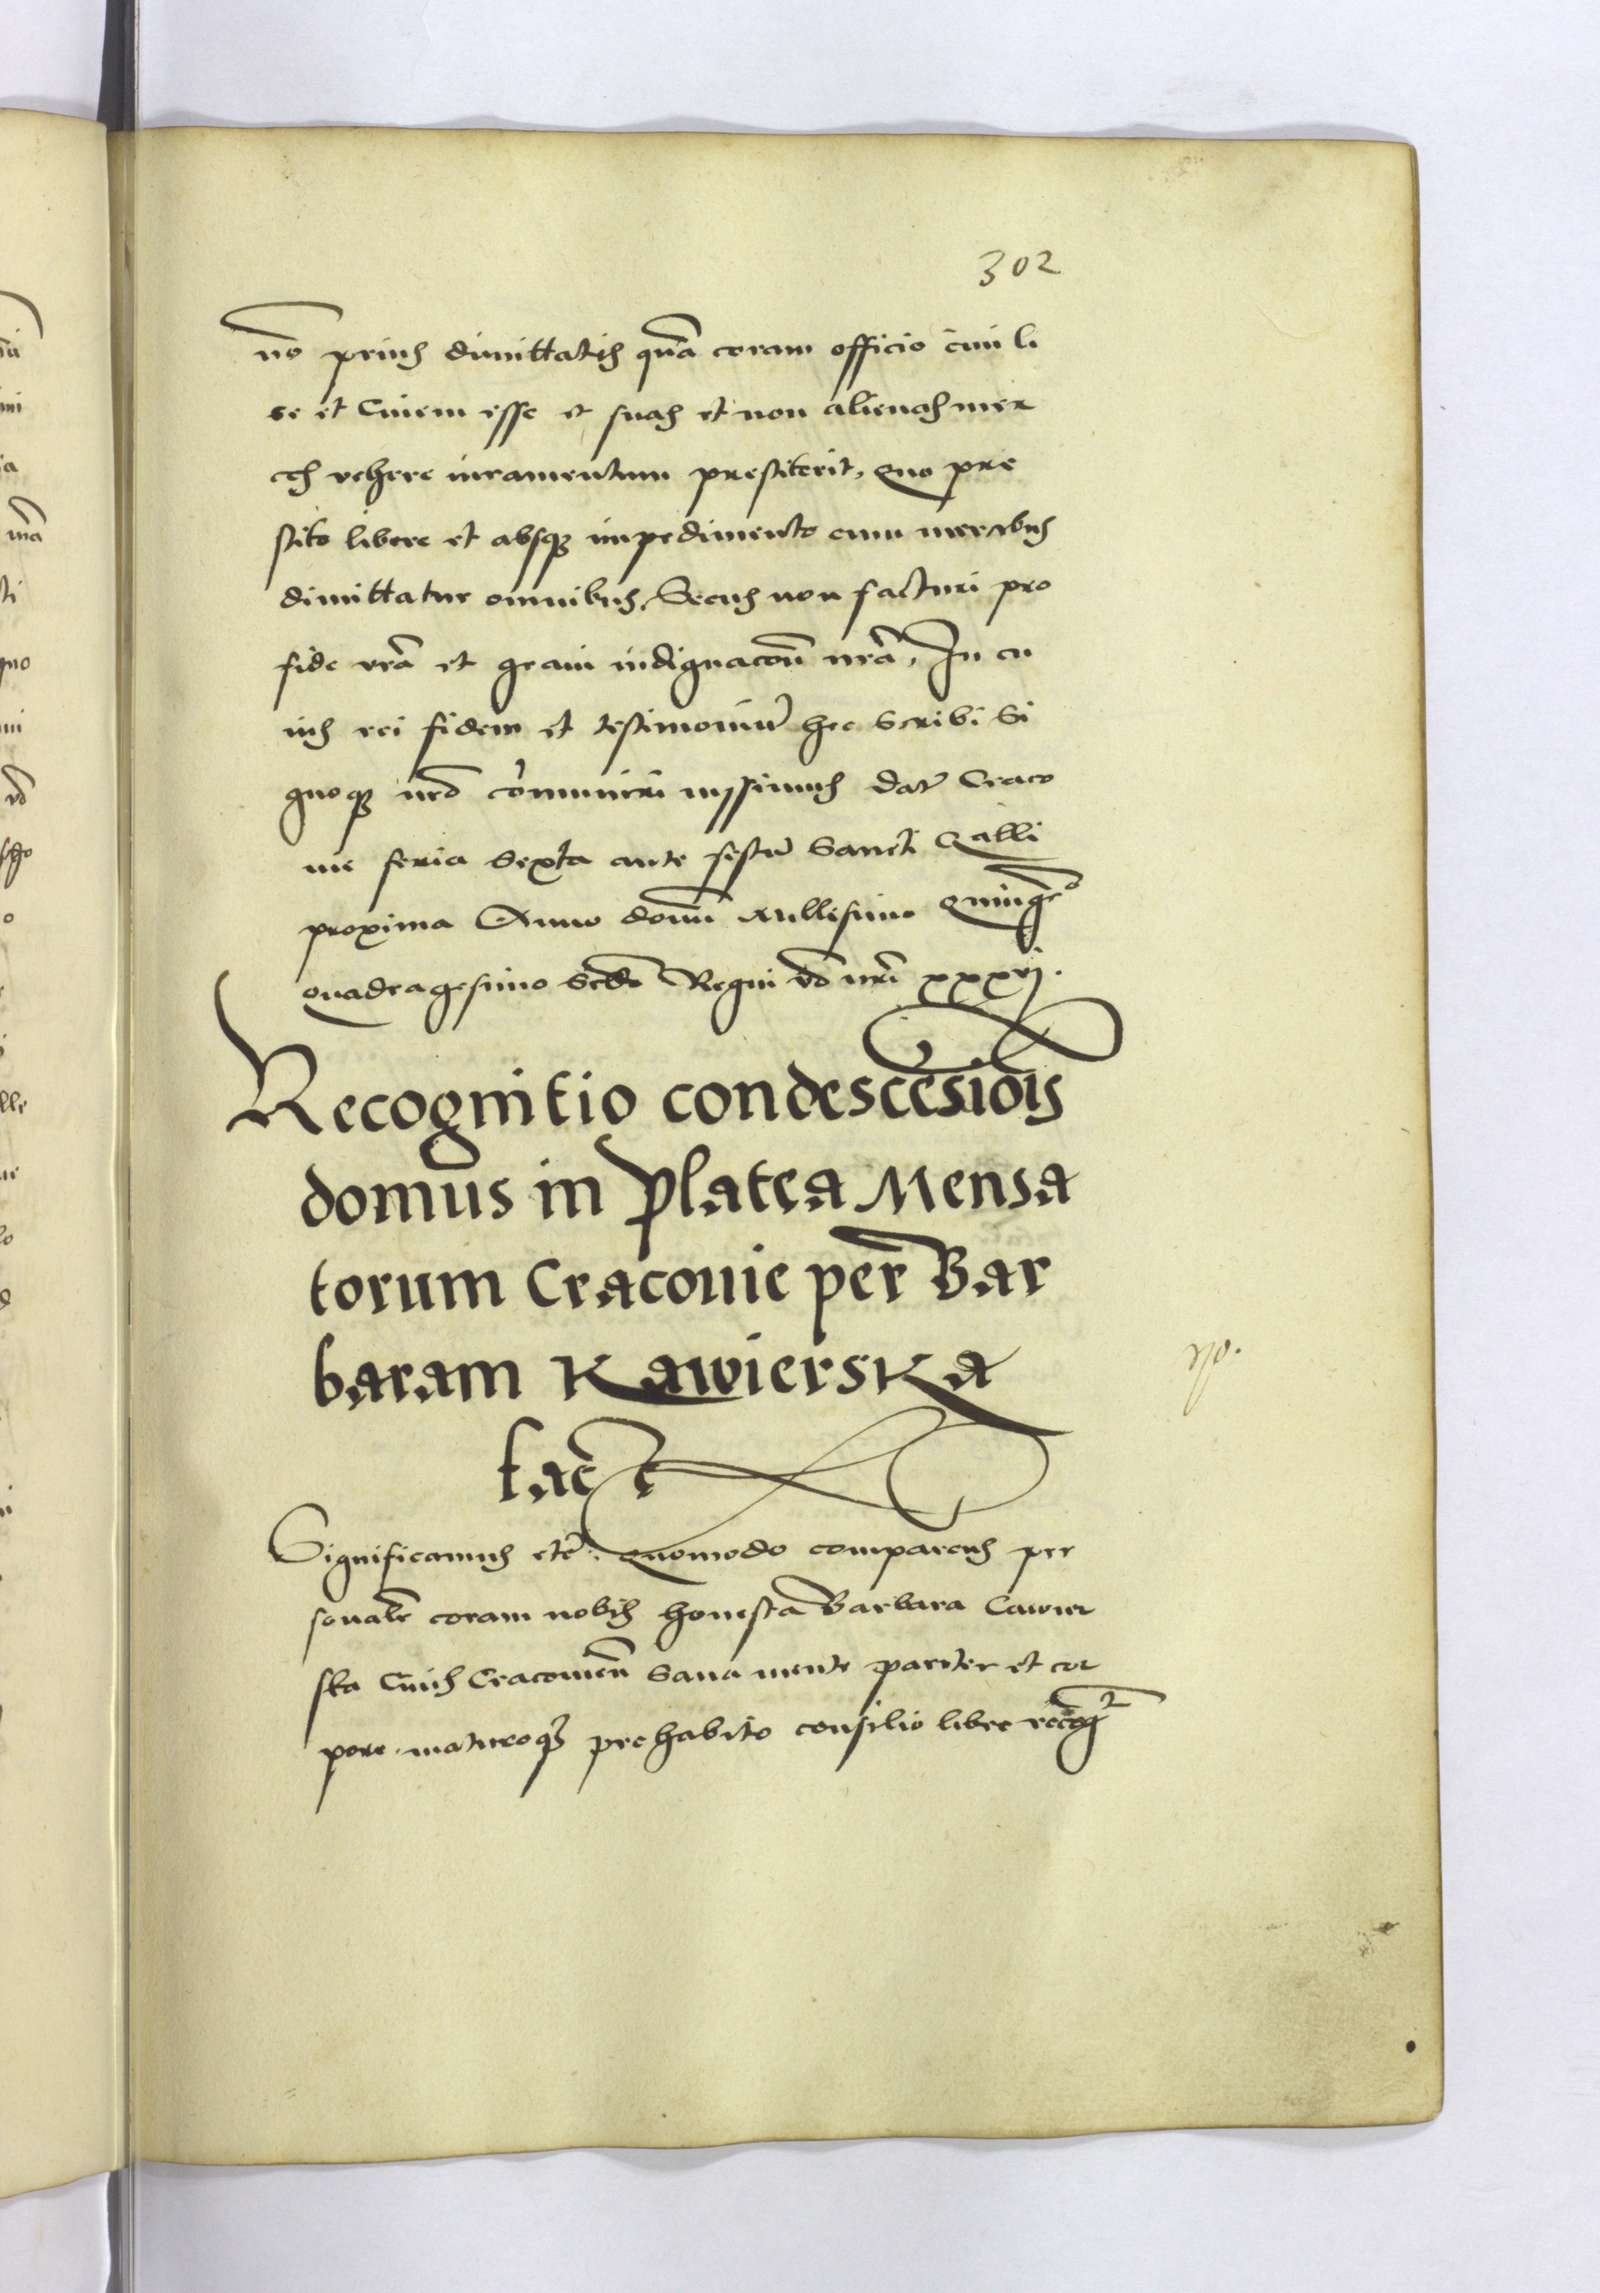 302
nō prius dimittatis quā coram officio ciui li
se et Ciuem esse et suas et non alienas mer
ces vehere iuramentum prestiterit, Quo pre
stito libere et absq impedimento cum mercibus
dimittatur omnibus, Secus non facturi pro
fide vrā et graui indignacōni nrā, In cu
ius rei fidem et testimoniū hec scribi Si
gnoq nrō cōmuniri iussimus Dat Craco
uie feria sexta ante festū Sancti Galli
proxima Anno domī Millesimo Quingē
Quadragesimo Scdo Regni vō nrī xxxvj.
Recognitio condescēsiois
domus in platea Mensa
torum Cracouie per Bar
baram Kawierska
fact
Significamus etc. Quomodo comparens per
sonalr coram nobis honesta Barbara Cawier
ska Ciuis Cracouieñ Sana mente pariter et cor
pore, maturoq prehabito consilio libere recog